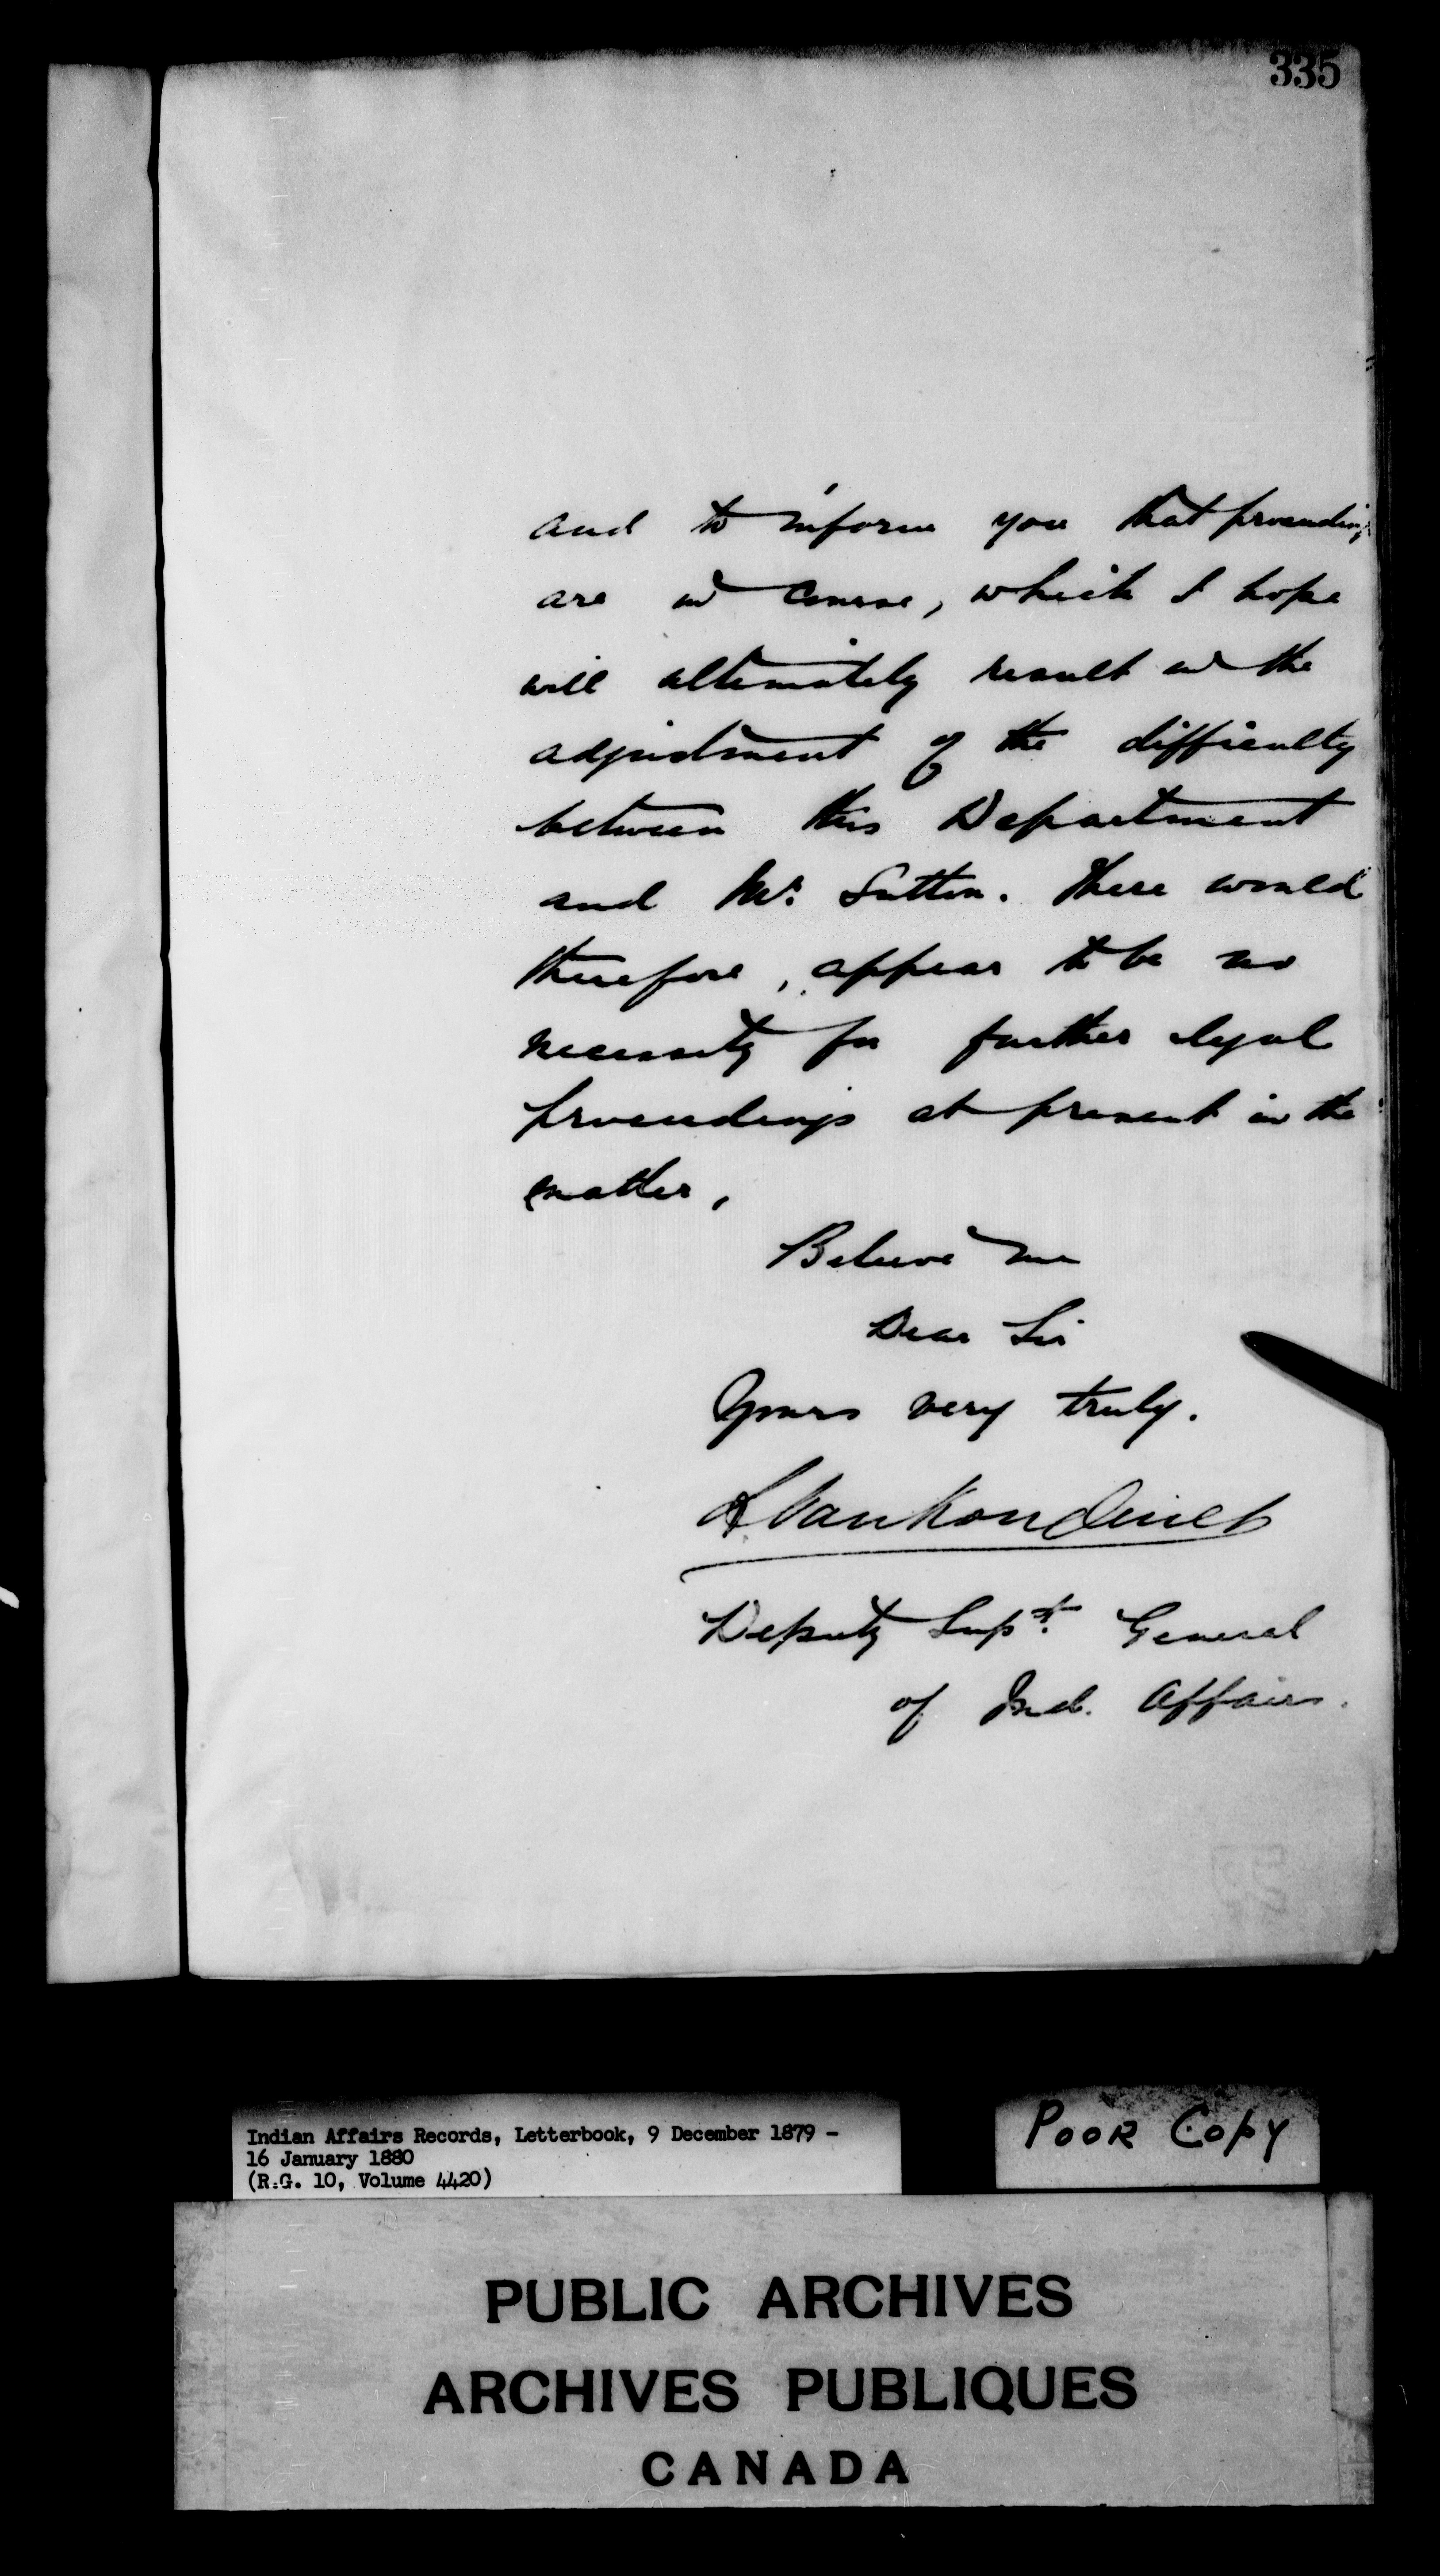 335
and to inform you that proceedings
are in course, which I hope
will ultimately result in the
adjustment of the difficulty
between this Department
and Mr. Sutton. There would
therefore, appear to be no
necessity for further legal
proceedings at present in the
matter,
Believe me
Dear Sir
Yours very truly.
L VanKoughnet
Deputy Supt. General
of Ind. Affairs.
Indian Affairs Records, Letterbook, 9 December 1879 -
16 January 1880
(R.G. 10, Volume 4420)
POOR COPY
PUBLIC ARCHIVES
ARCHIVES PUBLIQUES
CANADA